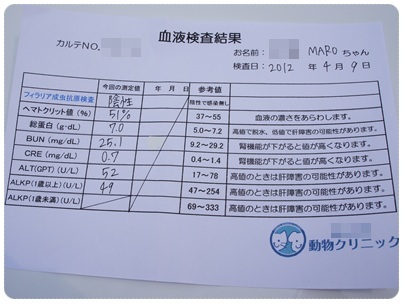 血液検査結果
カルテNO.
お名前: MAROちゃん
検査日: 2012 年 4 月 9 日
今回の測定値 年 月 日 参考値
フィラリア成虫抗原検査 陰性 陰性で感染無し
ヘマトクリット値 (%) 51% 37~55 血液の濃さをあらわします。
総蛋白 (g·dL) 7.0 5.0~7.2 高値で脱水、低値で肝障害の可能性があります。
BUN (mg/dL) 25.1 9.2~29.2 腎機能が下がると値が高くなります。
CRE (mg/dL) 0.7 0.4~1.4 腎機能が下がると値が高くなります。
ALT(GPT) (U/L) 52 17~78 高値のときは肝障害の可能性があります。
ALKP(1歳以上) (U/L) 49 47~254 高値のときは肝障害の可能性があります。
ALKP(1歳未満) (U/L) 69~333 高値のときは肝障害の可能性があります。
動物クリニック